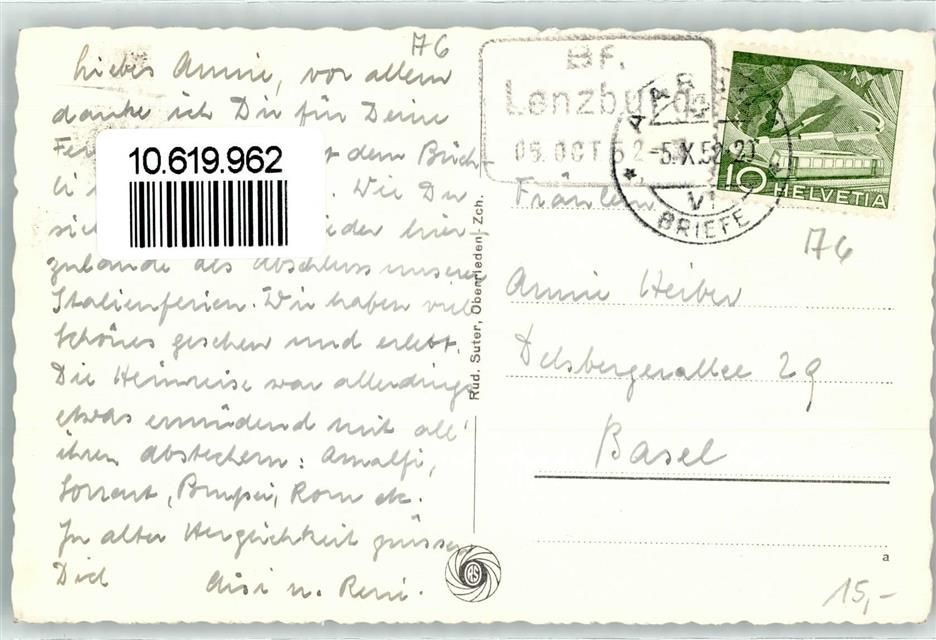 76
Liebes Annie, vor allem
danke ich Dir für Deine
Fer
10.619.962
dem Büch-
li
Wie Du
sich
leider hier
zulande als Abschluss unserer
Italienferien. Wir haben viel
Schönes gesehen und erlebt.
Die Heimreise war allerdings
etwas ermüdend mit all'
ihren Abstechern: Amalfi,
Sorrent, Pompei, Rom etc.
In alter Herzlichkeit grüssen
Dich
u. Reni.
Rud. Suter, Oberrieden/Zch.
Bf.
Lenzburg
05. OCT 52
-5.X.52-20
VI
BRIEFE
10 HELVETIA
Fräulein
76
Annie Heiber
Delsbergerallee 29
Basel
a
RS
15,-